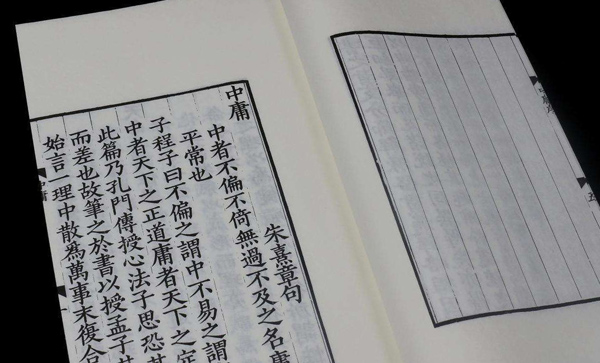 中庸
五
中庸
朱熹章句
中者不偏不倚無過不及之名庸
平常也
子程子曰不偏之謂中不易之謂
中者天下之正道庸者天下之定
此篇乃孔門傳授心法子思恐其
而差也故筆之於書以授孟子其
始言一理中散為萬事末復合